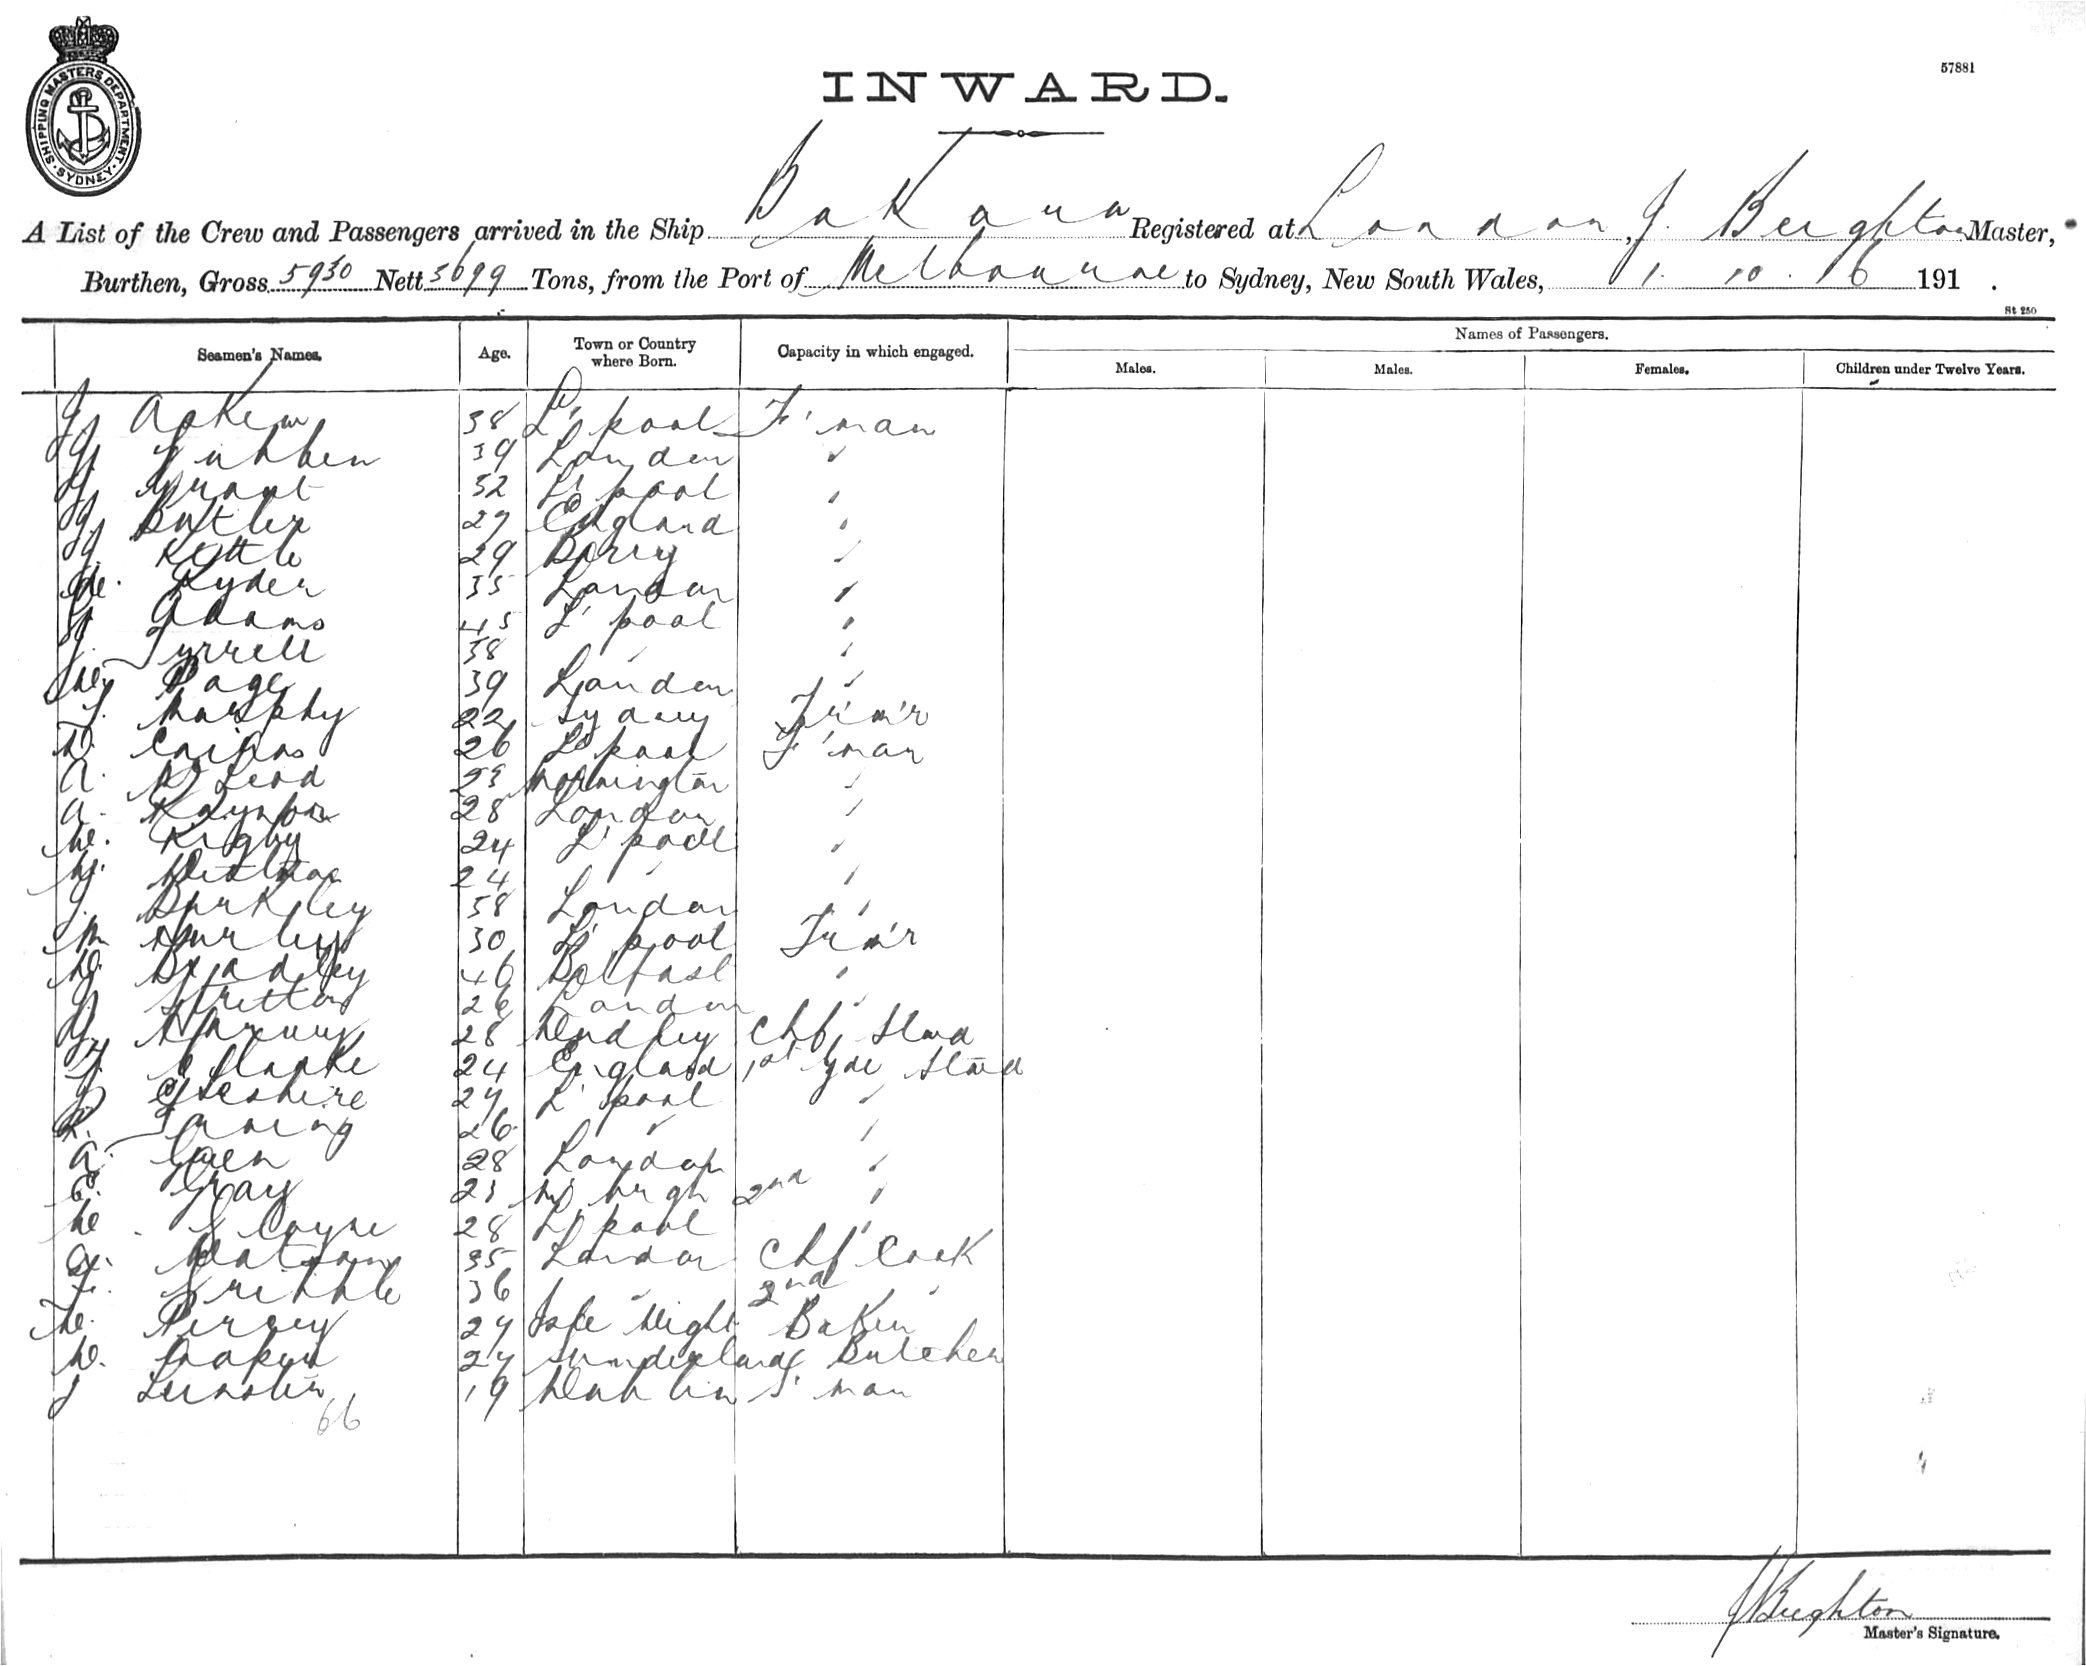 SHIPPING MASTERS DEPARTMENT · SYDNEY ·
57881
INWARD.
A List of the Crew and Passengers arrived in the Ship Bakara Registered at London, J. Beighton Master,
Burthen, Gross 5930 Nett 3699 Tons, from the Port of Melbourne to Sydney, New South Wales, 1. 10. 16 191 .
St 250
Seamen's Names. Age. Town or Country where Born. Capacity in which engaged. Names of Passengers.
Males. Males. Females. Children under Twelve Years.
J Askew 38 L'pool F'man
39 London "
J Grant 32 L'pool "
J Butler 27 England "
J Kettle 29 "
W. Ryder 35 London "
J Adams 45 L'pool "
J. Tyrrell 38 " "
W. Page 39 London "
J. Murphy 22 Sydney Tr'm'r
D. Cairns 26 L'pool F'man
A. McLeod 23 Mornington "
A. 28 London "
W. Rigby 24 L'pool "
24 " "
J. 38 London "
M 30 L'pool Tr'm'r
W. Bradley 46 Belfast "
J. Stretton 26 London "
28 Dudley Chf Stwd
J. Clarke 24 England 1st Gde Stwd
J. Cheshire 27 L'pool "
R. 26 " "
A. Owen 28 London "
C. Gray 23 2nd "
W. 28 L'pool "
Watson 35 London Chf Cook
F. Gribble 36 " 2nd "
W. Percey 27 Isle Wight Baker
W. 27 Sunderland Butcher
J 19 Dublin F'man
66
J Beighton
Master's Signature.